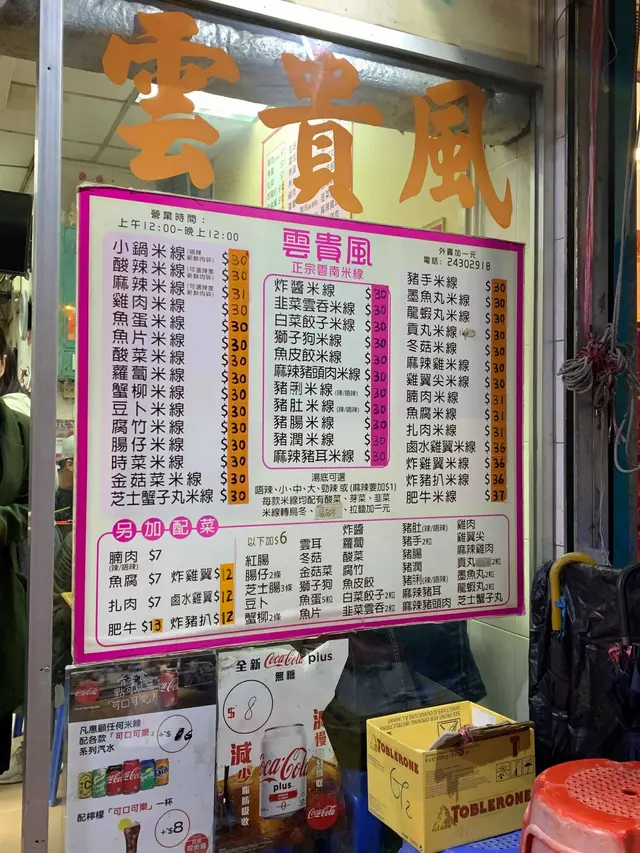 雲貴風
營業時間：
上午12:00-晚上12:00
雲貴風
正宗雲南米線
外賣加一元
電話：24302918
小鍋米線 $30
酸辣米線 $30
麻辣米線 $31
雞肉米線 $30
魚蛋米線 $30
魚片米線 $30
酸菜米線 $30
蘿蔔米線 $30
蟹柳米線 $30
豆卜米線 $30
腐竹米線 $30
腸仔米線 $30
時菜米線 $30
金菇菜米線 $30
芝士蟹子丸米線 $30
炸醬米線 $30
韭菜雲吞米線 $30
白菜餃子米線 $30
獅子狗米線 $30
魚皮餃米線 $30
麻辣豬頭肉米線 $30
豬脷米線(辣/唔辣) $30
豬肚米線(辣/唔辣) $30
豬腸米線 $30
豬潤米線 $30
麻辣豬耳米線 $30
豬手米線 $30
墨魚丸米線 $30
龍蝦丸米線 $30
貢丸米線 $30
冬菇米線 $30
麻辣雞米線 $30
雞翼尖米線 $30
腩肉米線 $31
魚腐米線 $31
扎肉米線 $31
鹵水雞翼米線 $36
炸雞翼米線 $36
炸豬扒米線 $36
肥牛米線 $37
湯底可選
唔辣、小、中、大、勁辣 或 (麻辣要加$1)
每款米線均配有酸菜、芽菜、韭菜
米線轉烏冬、拉麵加一元
另加配菜
腩肉 $7
(辣/唔辣)
魚腐 $7
扎肉 $7
肥牛 $13
炸雞翼 $12
鹵水雞翼 $12
炸豬扒 $12
以下加$6
紅腸
腸仔2條
芝士腸3條
豆卜
蟹柳2條
雲耳
冬菇
金菇菜
獅子狗
魚蛋5粒
魚片
炸醬
蘿蔔
酸菜
腐竹
魚皮餃
白菜餃子2粒
韭菜雲吞2粒
豬肚(辣/唔辣)
豬手2粒
豬腸
豬潤
豬脷(辣/唔辣)
麻辣豬耳
麻辣豬頭肉
雞肉
雞翼尖
麻辣雞肉
貢丸2粒
墨魚丸2粒
龍蝦丸2粒
芝士蟹子丸
Coca-Cola
點可以無
「可口可樂」!
凡惠顧任何米線
配各款「可口可樂」
系列汽水
配檸檬「可口可樂」一杯
+$8
全新 Coca-Cola plus
無糖
$8
減少脂肪吸收
Coca-Cola
plus
Coca-Cola
TOBLERONE
TOBLERONE